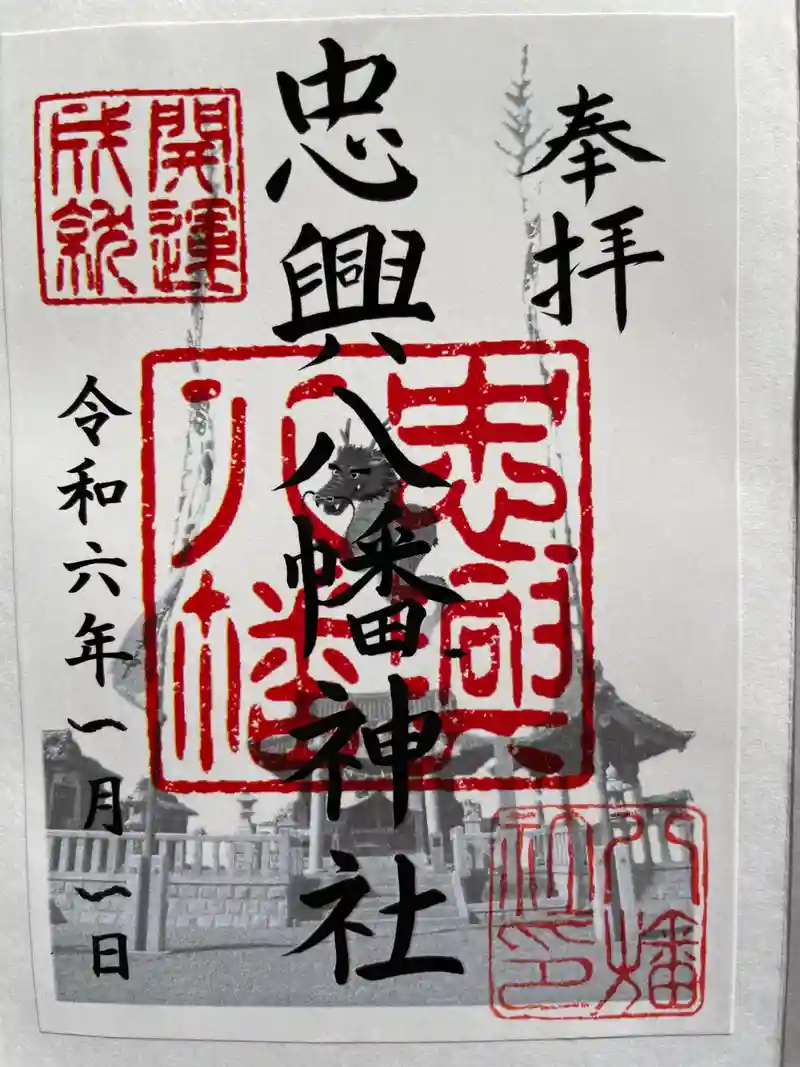 奉拝
忠興八幡神社
開運
成就
忠興
八幡
令和六年一月一日
八幡
社印